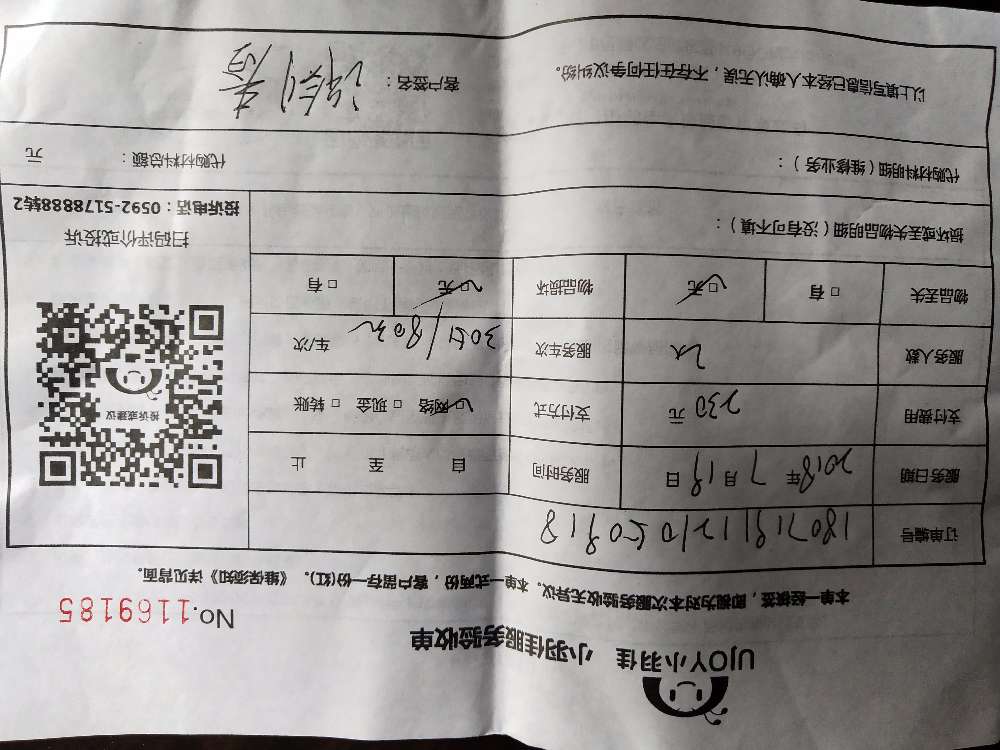 UJOY小羽佳 小羽佳服务验收单
No.1169185
本单一经核签，即视为对本次服务验收无异议。本单一式两份，客户留存一份(红)。《维保须知》详见背面。
订单编号 1807191121050918
服务日期 2018年7月19日 服务时间 自 至 止
支付费用 230元 支付方式 □网络 □现金 □转账
服务人数 2人 服务车次 车/次
物品丢失 □有 □无 物品损坏 □无 □有
投诉或建议
扫码评价或投诉
投诉电话：0592-5178888转2
损坏或丢失物品明细（没有可不填）：
代购材料明细（维修业务）： 代购材料总额： 元
以上填写信息已经本人确认无误，不存在任何争议纠纷。 客户签名：